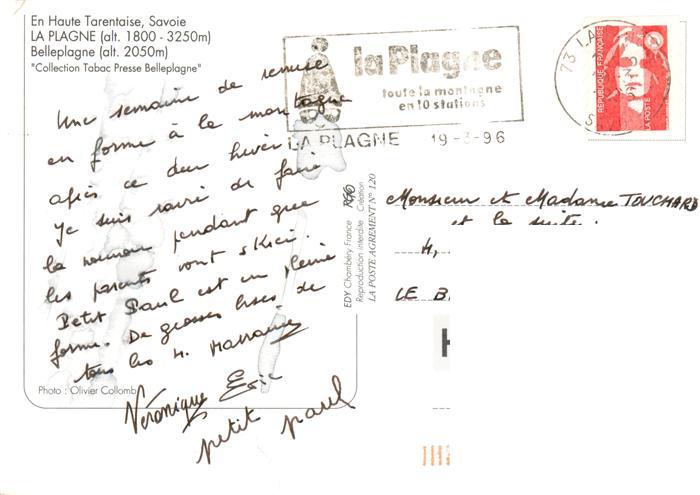 En Haute Tarentaise, Savoie
LA PLAGNE (alt. 1800 - 3250m)
Belleplagne (alt. 2050m)
"Collection Tabac Presse Belleplagne"
Une semaine de remise
en forme à la montagne
après ce dur hiver
Je suis ravie de faire
la nounou pendant que
les parents vont skier.
Petit Paul est en pleine
forme. De grosses bises de
tous les 4.
Véronique Eric
petit paul
Photo : Olivier Collomb
la Plagne
toute la montagne
en 10 stations
LA PLAGNE 19-3-96
73 LA
RÉPUBLIQUE FRANÇAISE
LA POSTE
EDY Chambéry France
Reproduction interdite Création
LA POSTE AGREMENT N° 120
Monsieur et Madame TOUCHARD
et la suite.
4,
LE B